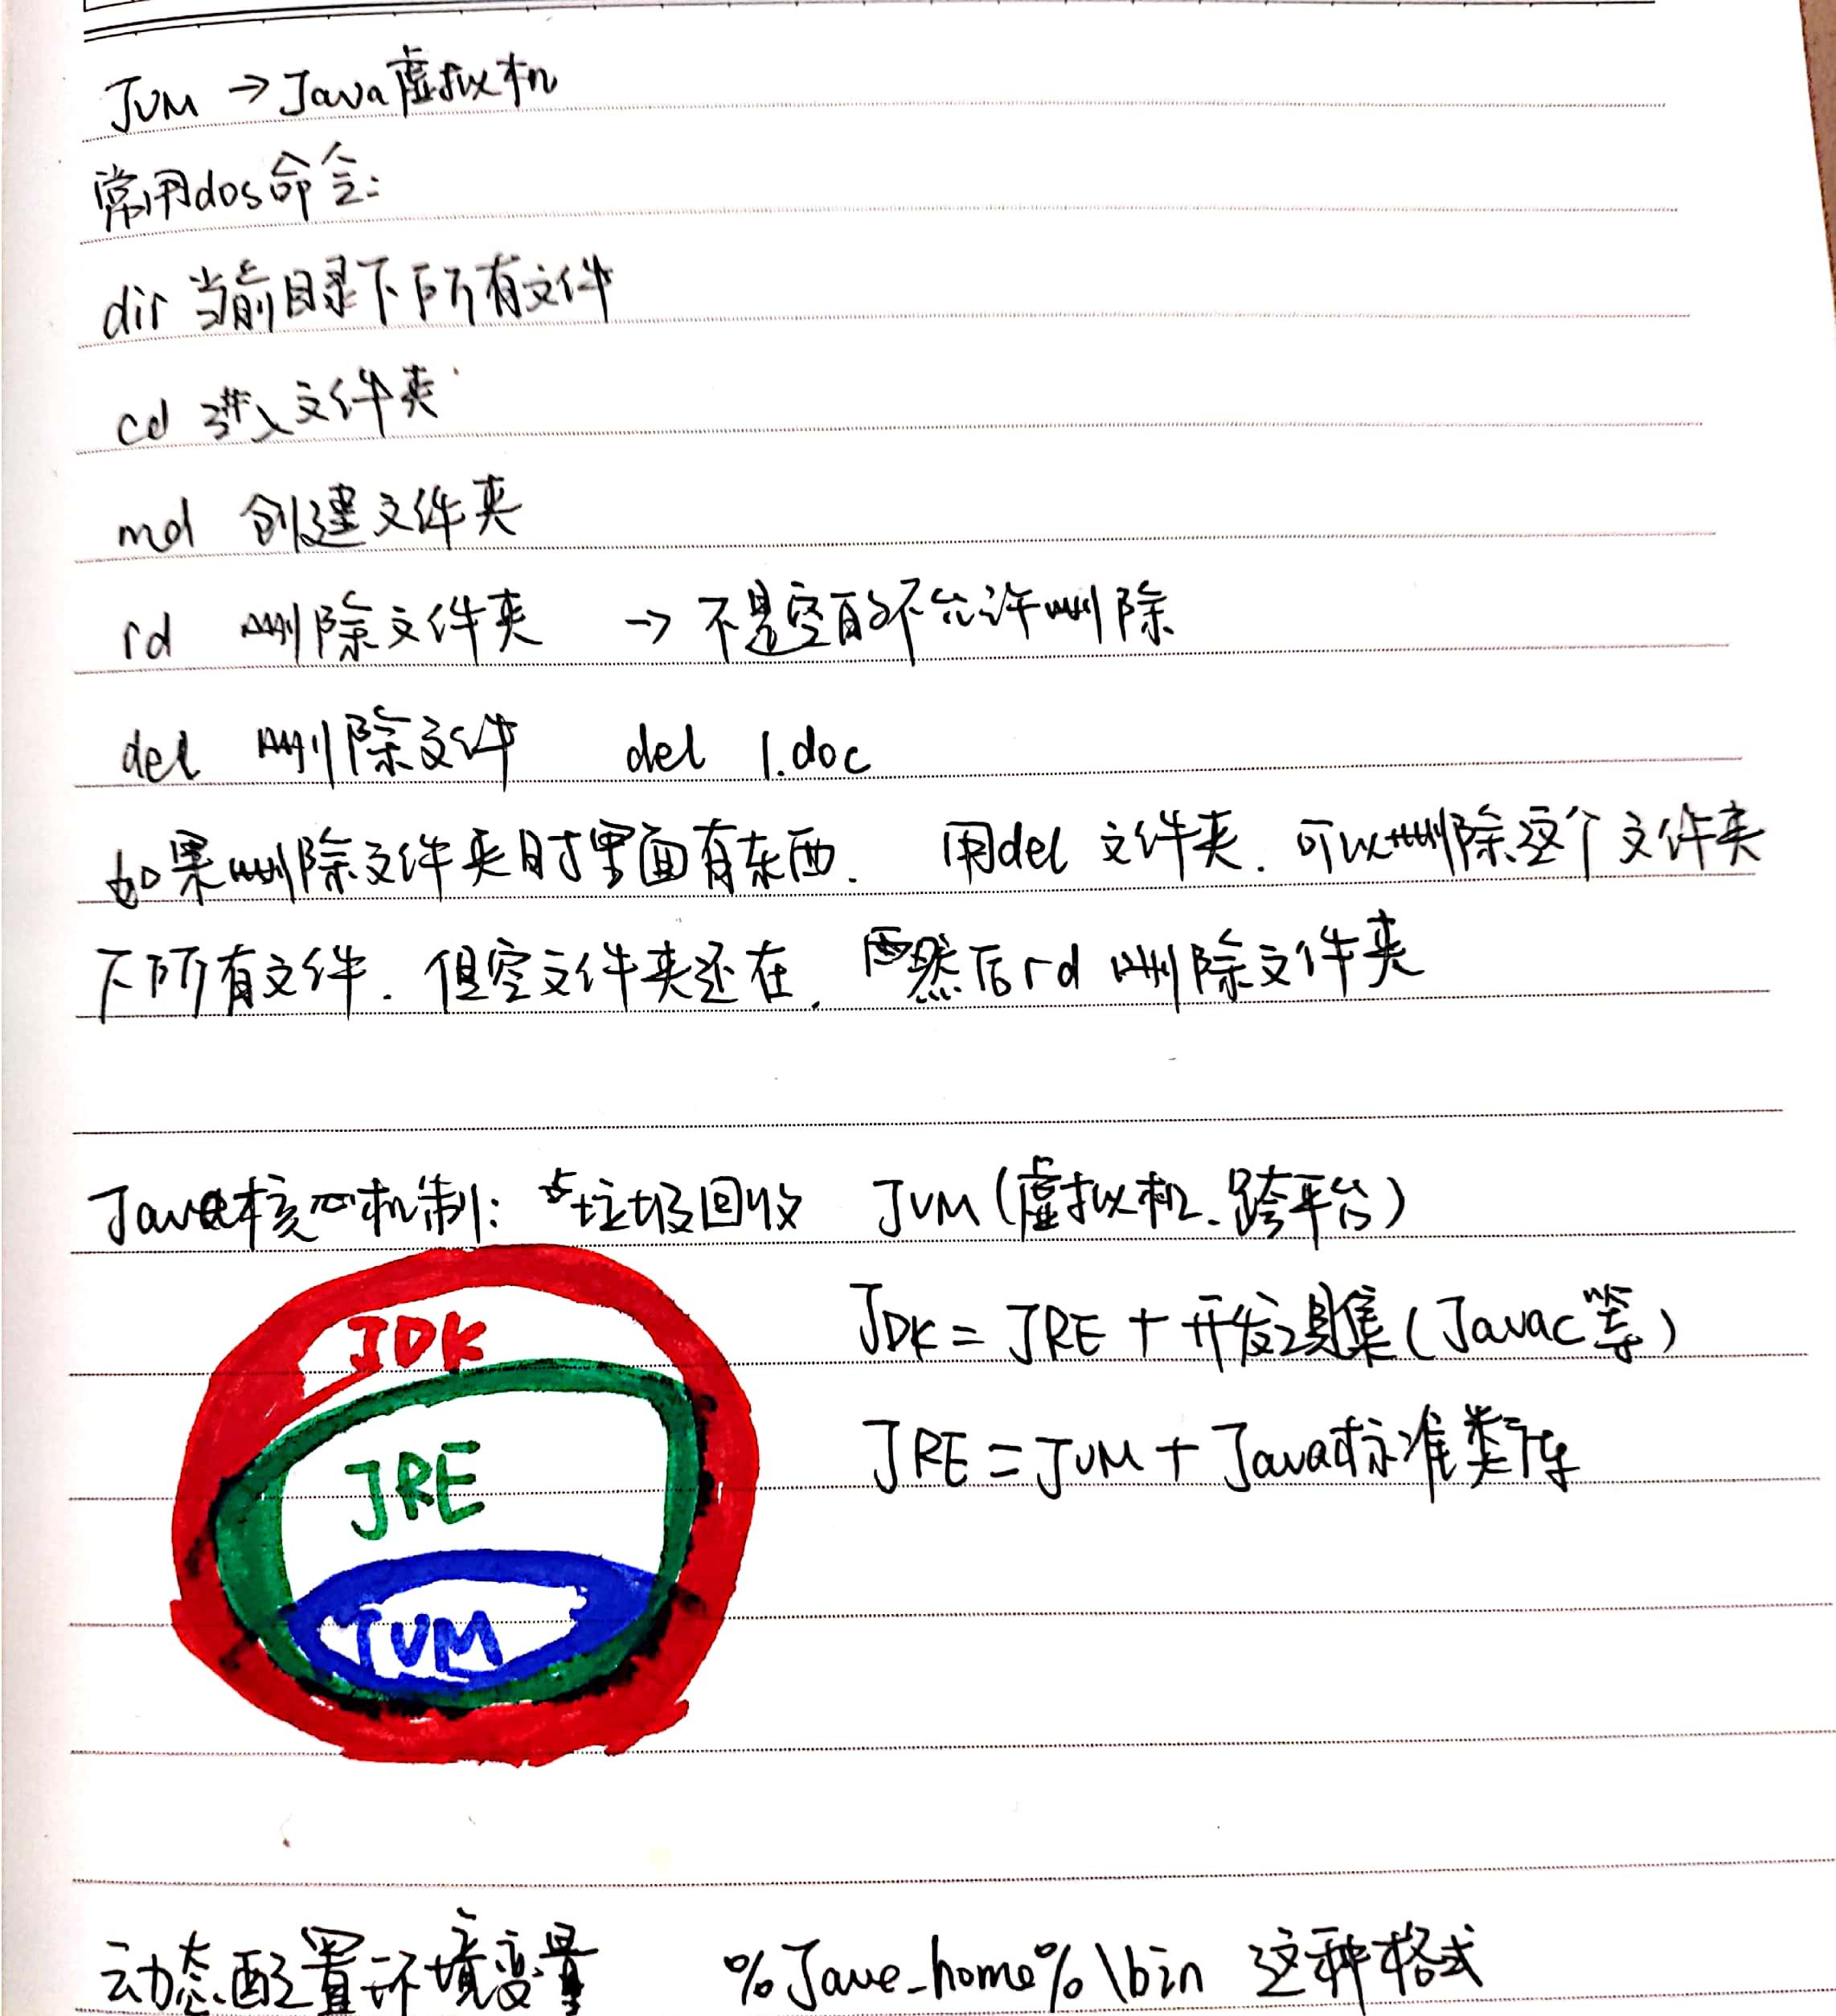 JVM → Java虚拟机
常用dos命令:
dir 当前目录下所有文件
cd 进入文件夹
md 创建文件夹
rd 删除文件夹 → 不是空的不允许删除
del 删除文件 del 1.doc
如果删除文件夹时里面有东西. 用del 文件夹. 可以删除这个文件夹
下所有文件. 但空文件夹还在. 然后rd 删除文件夹
Java核心机制: 垃圾回收 JVM(虚拟机.跨平台)
JDK
JRE
JVM
JDK = JRE + 开发工具集(Javac等)
JRE = JVM + Java标准类库
动态配置环境变量 %Jave_home%\bin 这种格式